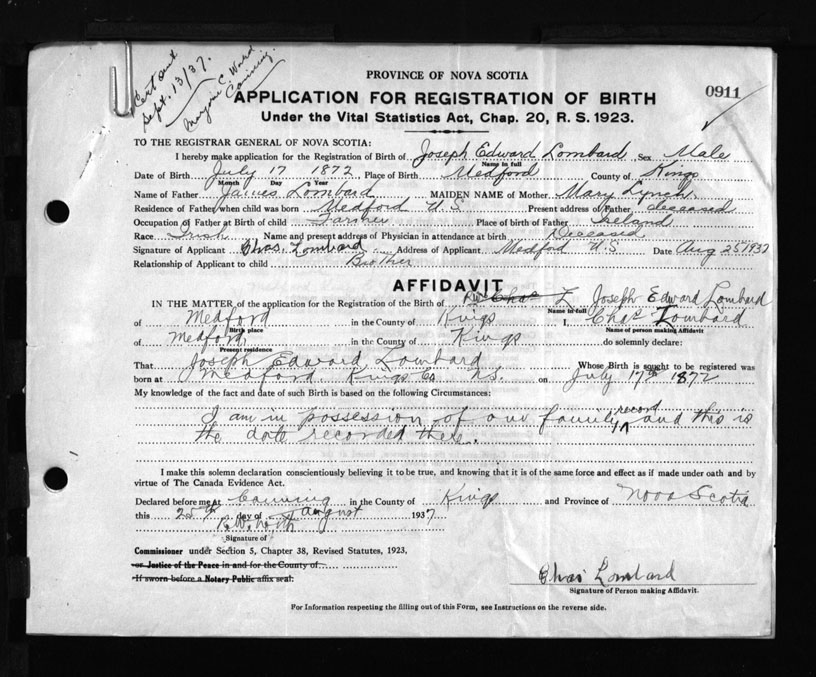 Cert out
Sept. 13/37.
Marjorie C. Ward
Canning.
PROVINCE OF NOVA SCOTIA
0911
APPLICATION FOR REGISTRATION OF BIRTH
Under the Vital Statistics Act, Chap. 20, R. S. 1923.
TO THE REGISTRAR GENERAL OF NOVA SCOTIA:
I hereby make application for the Registration of Birth of Joseph Edward Lombard Sex Male
Name in full
Date of Birth July 17 1872 Place of Birth Medford County of Kings
Month Day Year
Name of Father James Lombard MAIDEN NAME of Mother Mary Lynch
Residence of Father when child was born Medford N S Present address of Father deceased
Occupation of Father at Birth of child Farmer Place of birth of Father Ireland
Race Irish Name and present address of Physician in attendance at birth Deceased
Signature of Applicant Chas. Lombard Address of Applicant Medford N S Date Aug 25 1937
Relationship of Applicant to child Brother
AFFIDAVIT
IN THE MATTER of the application for the Registration of the Birth of Chas L Joseph Edward Lombard
Name in full
of Medford in the County of Kings I, Chas Lombard
Birth place Name of person making Affidavit
of Medford in the County of Kings do solemnly declare:
Present residence
That Joseph Edward Lombard Whose Birth is sought to be registered was
born at Medford Kings Co N.S. on July 17th 1872
My knowledge of the fact and date of such Birth is based on the following Circumstances:
I am in possession of our family record and this is
the date recorded there.
I make this solemn declaration conscientiously believing it to be true, and knowing that it is of the same force and effect as if made under oath and by
virtue of The Canada Evidence Act.
Declared before me at Canning in the County of Kings and Province of Nova Scotia
this 25th day of August 1937
Signature of
Commissioner under Section 5, Chapter 38, Revised Statutes, 1923,
or Justice of the Peace in and for the County of
If sworn before a Notary Public affix seal.
Chas Lombard
Signature of Person making Affidavit.
For Information respecting the filling out of this Form, see Instructions on the reverse side.